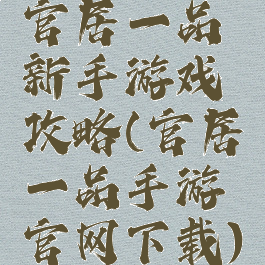 官居一品
新手游戏
攻略(官居
一品手游
官网下载)